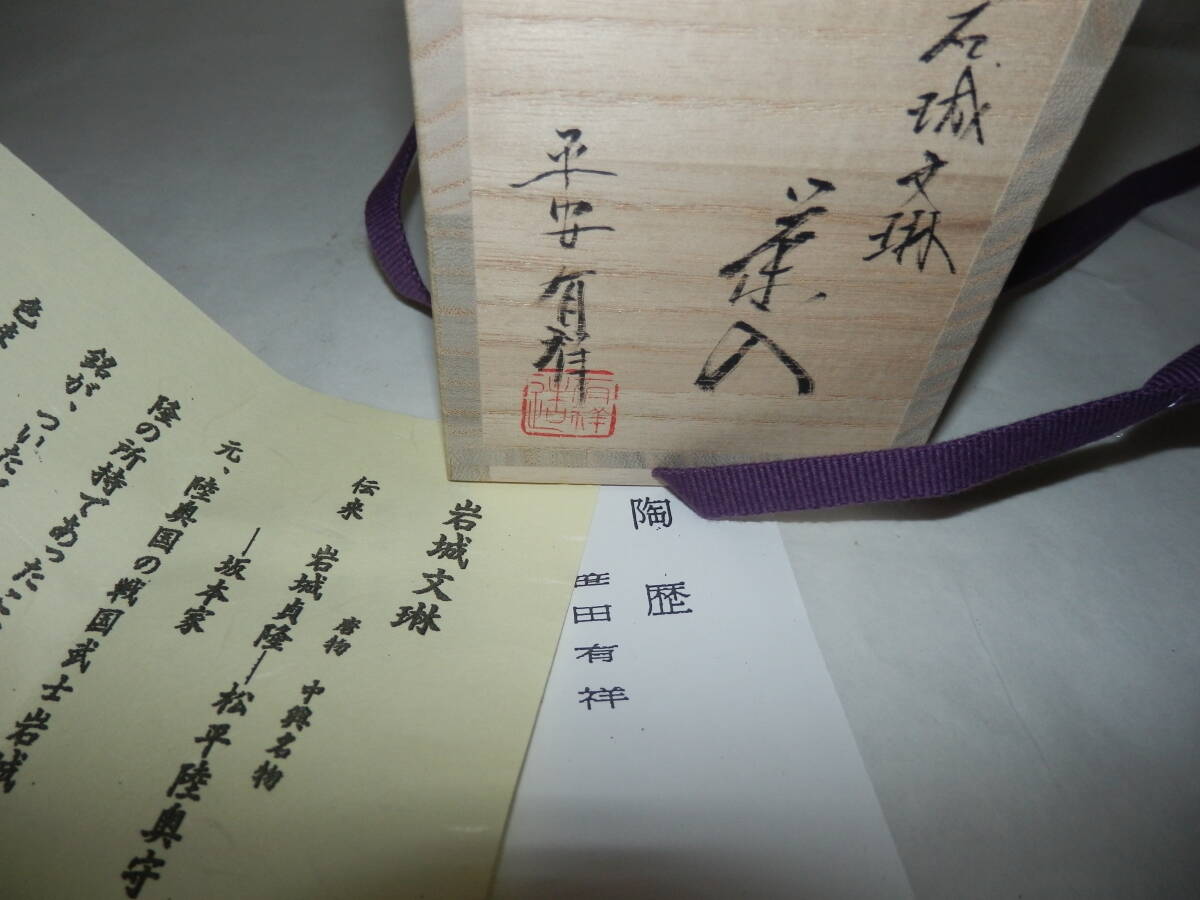 岩城文琳
茶入
平安 有祥
有祥造
陶歴
庄田有祥
岩城文琳
唐物 中興名物
伝来 岩城貞隆―松平陸奥守
―坂本家
元、陸奥国の戦国武士岩城
隆の所持であった
銘が、ついた。
色